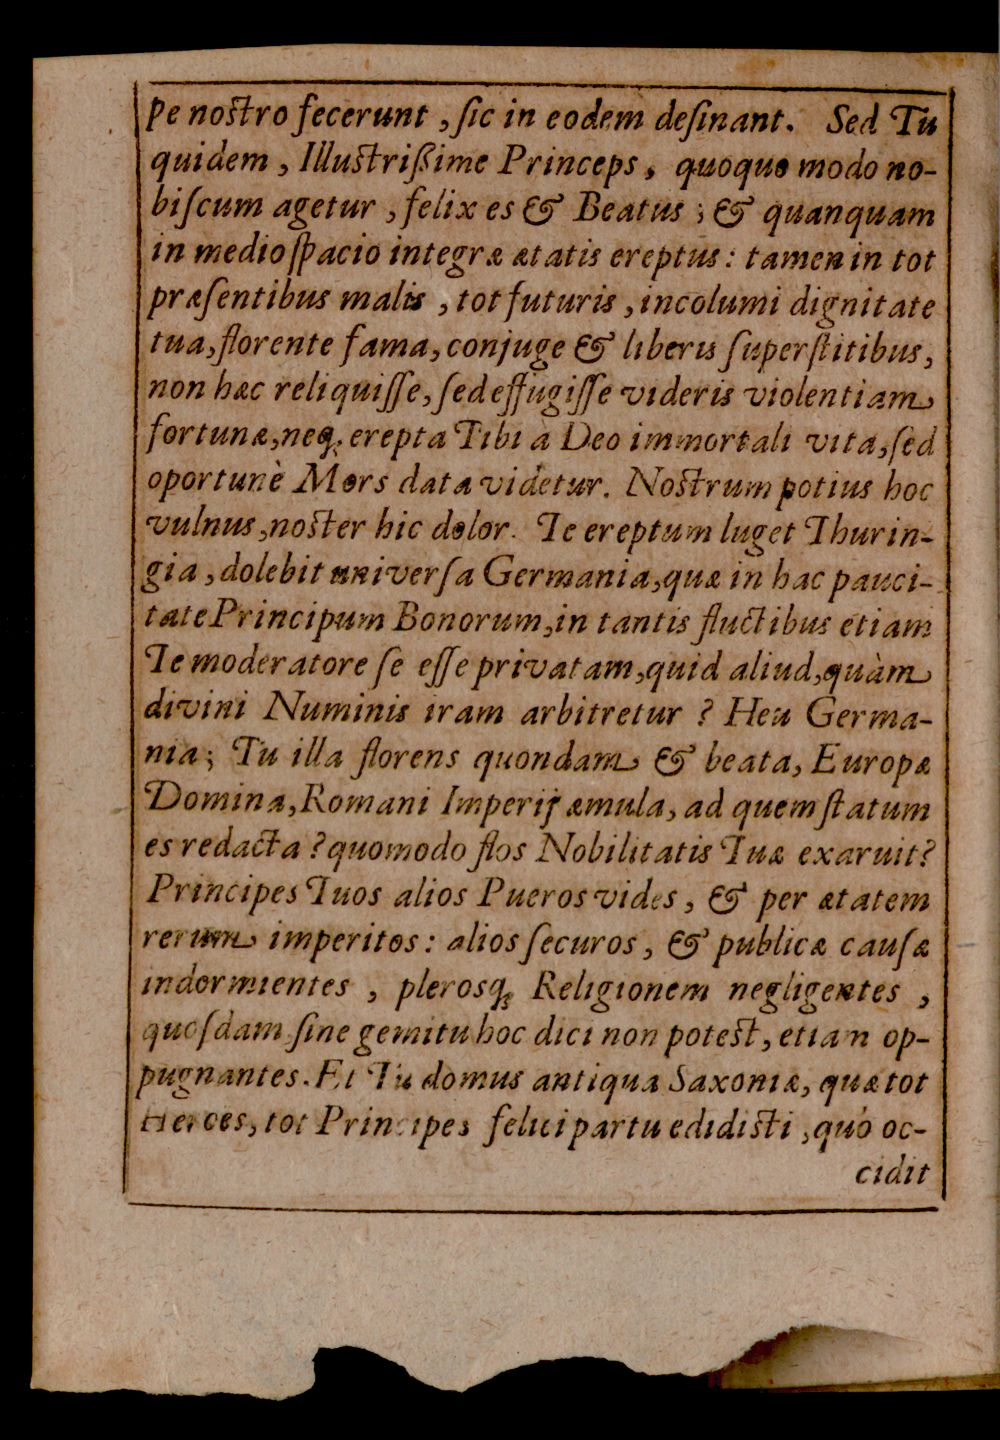 pe noſtro fecerunt, ſic in eodem deſinant. Sed Tu
quidem, Illuſtrißime Princeps, quoquo modo no-
biſcum agetur, felix es & Beatus; & quanquam
in medio ſpacio integræ ætatis ereptus: tamen in tot
præſentibus malis, tot futuris, incolumi dignitate
tua, florente fama, conjuge & liberis ſuperſtitibus,
non hæc reliquiſſe, ſed effugiſſe videris violentiam
fortunæ, neq; erepta Tibi à Deo immortali vita, ſed
oportunè Mors data videtur. Noſtrum potius hoc
vulnus, noſter hic dolor. Te ereptum luget Thurin-
gia, dolebit univerſa Germania, quæ in hac pauci-
tate Principum Bonorum, in tantis fluctibus etiam
Te moderatore ſe eſſe privatam, quid aliud, quàm
divini Numinis iram arbitretur? Heu Germa-
nia; Tu illa florens quondam & beata, Europæ
Domina, Romani Imperij æmula, ad quem ſtatum
es redacta? quomodo flos Nobilitatis Tuæ exaruit?
Principes Tuos alios Pueros vides, & per ætatem
rerum imperitos: alios ſecuros, & publicæ cauſæ
indormientes, plerosq; Religionem negligentes,
quoſdam ſine gemitu hoc dici non poteſt, etiam op-
pugnantes. Et Tu domus antiqua Saxoniæ, quæ tot
Heroes, tot Principes felici partu edidiſti, quò oc-
cidit